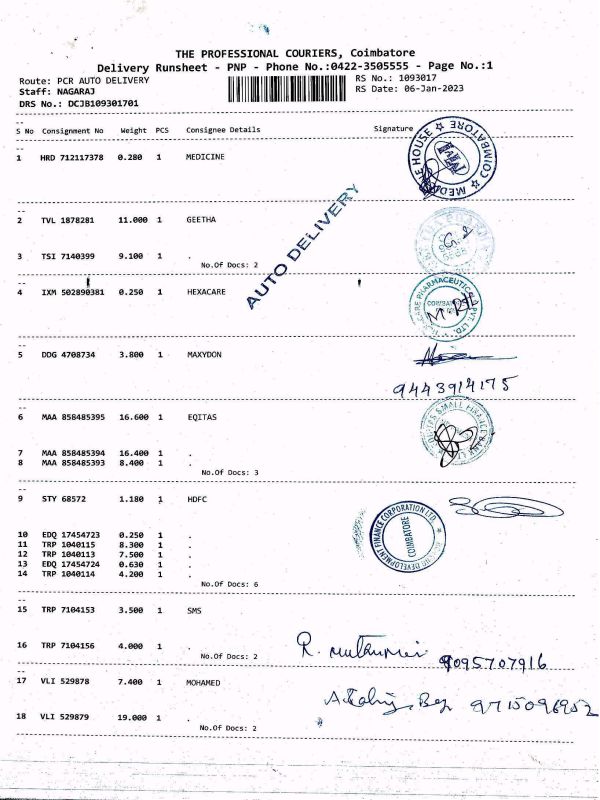 THE PROFESSIONAL COURIERS, Coimbatore
Delivery Runsheet - PNP - Phone No.:0422-3505555 - Page No.:1
Route: PCR AUTO DELIVERY RS No.: 1093017
Staff: NAGARAJ RS Date: 06-Jan-2023
DRS No.: DCJB109301701
S No Consignment No Weight PCS Consignee Details Signature
1 HRD 712117378 0.280 1 MEDICINE
HOUSE ☆ COIMBATORE ☆
2 TVL 1878281 11.000 1 GEETHA
AUTO DELIVERY
3 TSI 7140399 9.100 1 .
No.Of Docs: 2
4 IXM 502890381 0.250 1 HEXACARE
PHARMACEUTICA PVT. LTD.
5 DDG 4708734 3.800 1 MAXYDON
9443914175
6 MAA 858485395 16.600 1 EQITAS
SMALL FINANCE BANK
7 MAA 858485394 16.400 1 .
8 MAA 858485393 8.400 1 .
No.Of Docs: 3
9 STY 68572 1.180 1 HDFC
DEVELOPMENT FINANCE CORPORATION LTD.
COIMBATORE
10 EDQ 17454723 0.250 1 .
11 TRP 1040115 8.300 1 .
12 TRP 1040113 7.500 1 .
13 EDQ 17454724 0.630 1 .
14 TRP 1040114 4.200 1 .
No.Of Docs: 6
15 TRP 7104153 3.500 1 SMS
16 TRP 7104156 4.000 1 .
No.Of Docs: 2
9095707916
17 VLI 529878 7.400 1 MOHAMED
9715096952
18 VLI 529879 19.000 1 .
No.Of Docs: 2